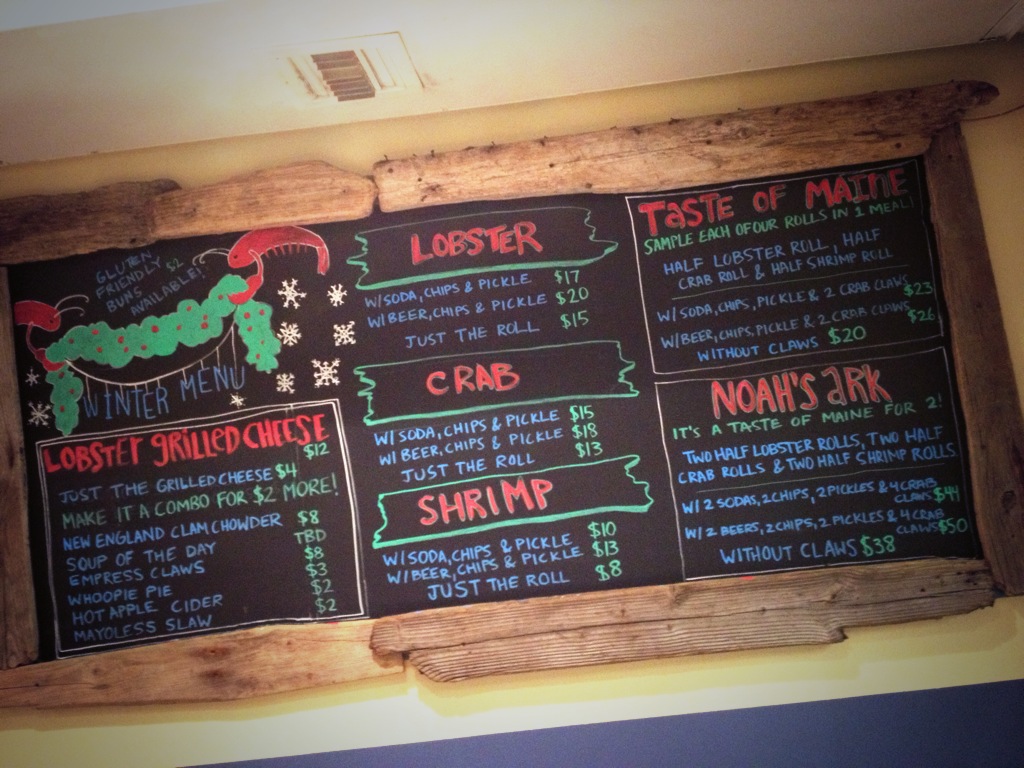 GLUTEN
FRIENDLY
BUNS $2
AVAILABLE!
WINTER MENU
LOBSTER GRILLED CHEESE
$12
JUST THE GRILLED CHEESE $4
MAKE IT A COMBO FOR $2 MORE!
NEW ENGLAND CLAM CHOWDER $8
SOUP OF THE DAY TBD
EMPRESS CLAWS $8
WHOOPIE PIE $3
HOT APPLE CIDER $2
MAYOLESS SLAW $2
LOBSTER
W/SODA, CHIPS & PICKLE $17
W/BEER, CHIPS & PICKLE $20
JUST THE ROLL $15
CRAB
W/SODA, CHIPS & PICKLE $15
W/BEER, CHIPS & PICKLE $18
JUST THE ROLL $13
SHRIMP
W/SODA, CHIPS & PICKLE $10
W/BEER, CHIPS & PICKLE $13
JUST THE ROLL $8
TASTE OF MAINE
SAMPLE EACH OF OUR ROLLS IN 1 MEAL!
HALF LOBSTER ROLL, HALF
CRAB ROLL & HALF SHRIMP ROLL
W/SODA, CHIPS, PICKLE & 2 CRAB CLAWS $23
W/BEER, CHIPS, PICKLE & 2 CRAB CLAWS $26
WITHOUT CLAWS $20
NOAH'S ARK
IT'S A TASTE OF MAINE FOR 2!
TWO HALF LOBSTER ROLLS, TWO HALF
CRAB ROLLS & TWO HALF SHRIMP ROLLS.
W/2 SODAS, 2 CHIPS, 2 PICKLES & 4 CRAB
CLAWS $44
W/2 BEERS, 2 CHIPS, 2 PICKLES & 4 CRAB
CLAWS $50
WITHOUT CLAWS $38